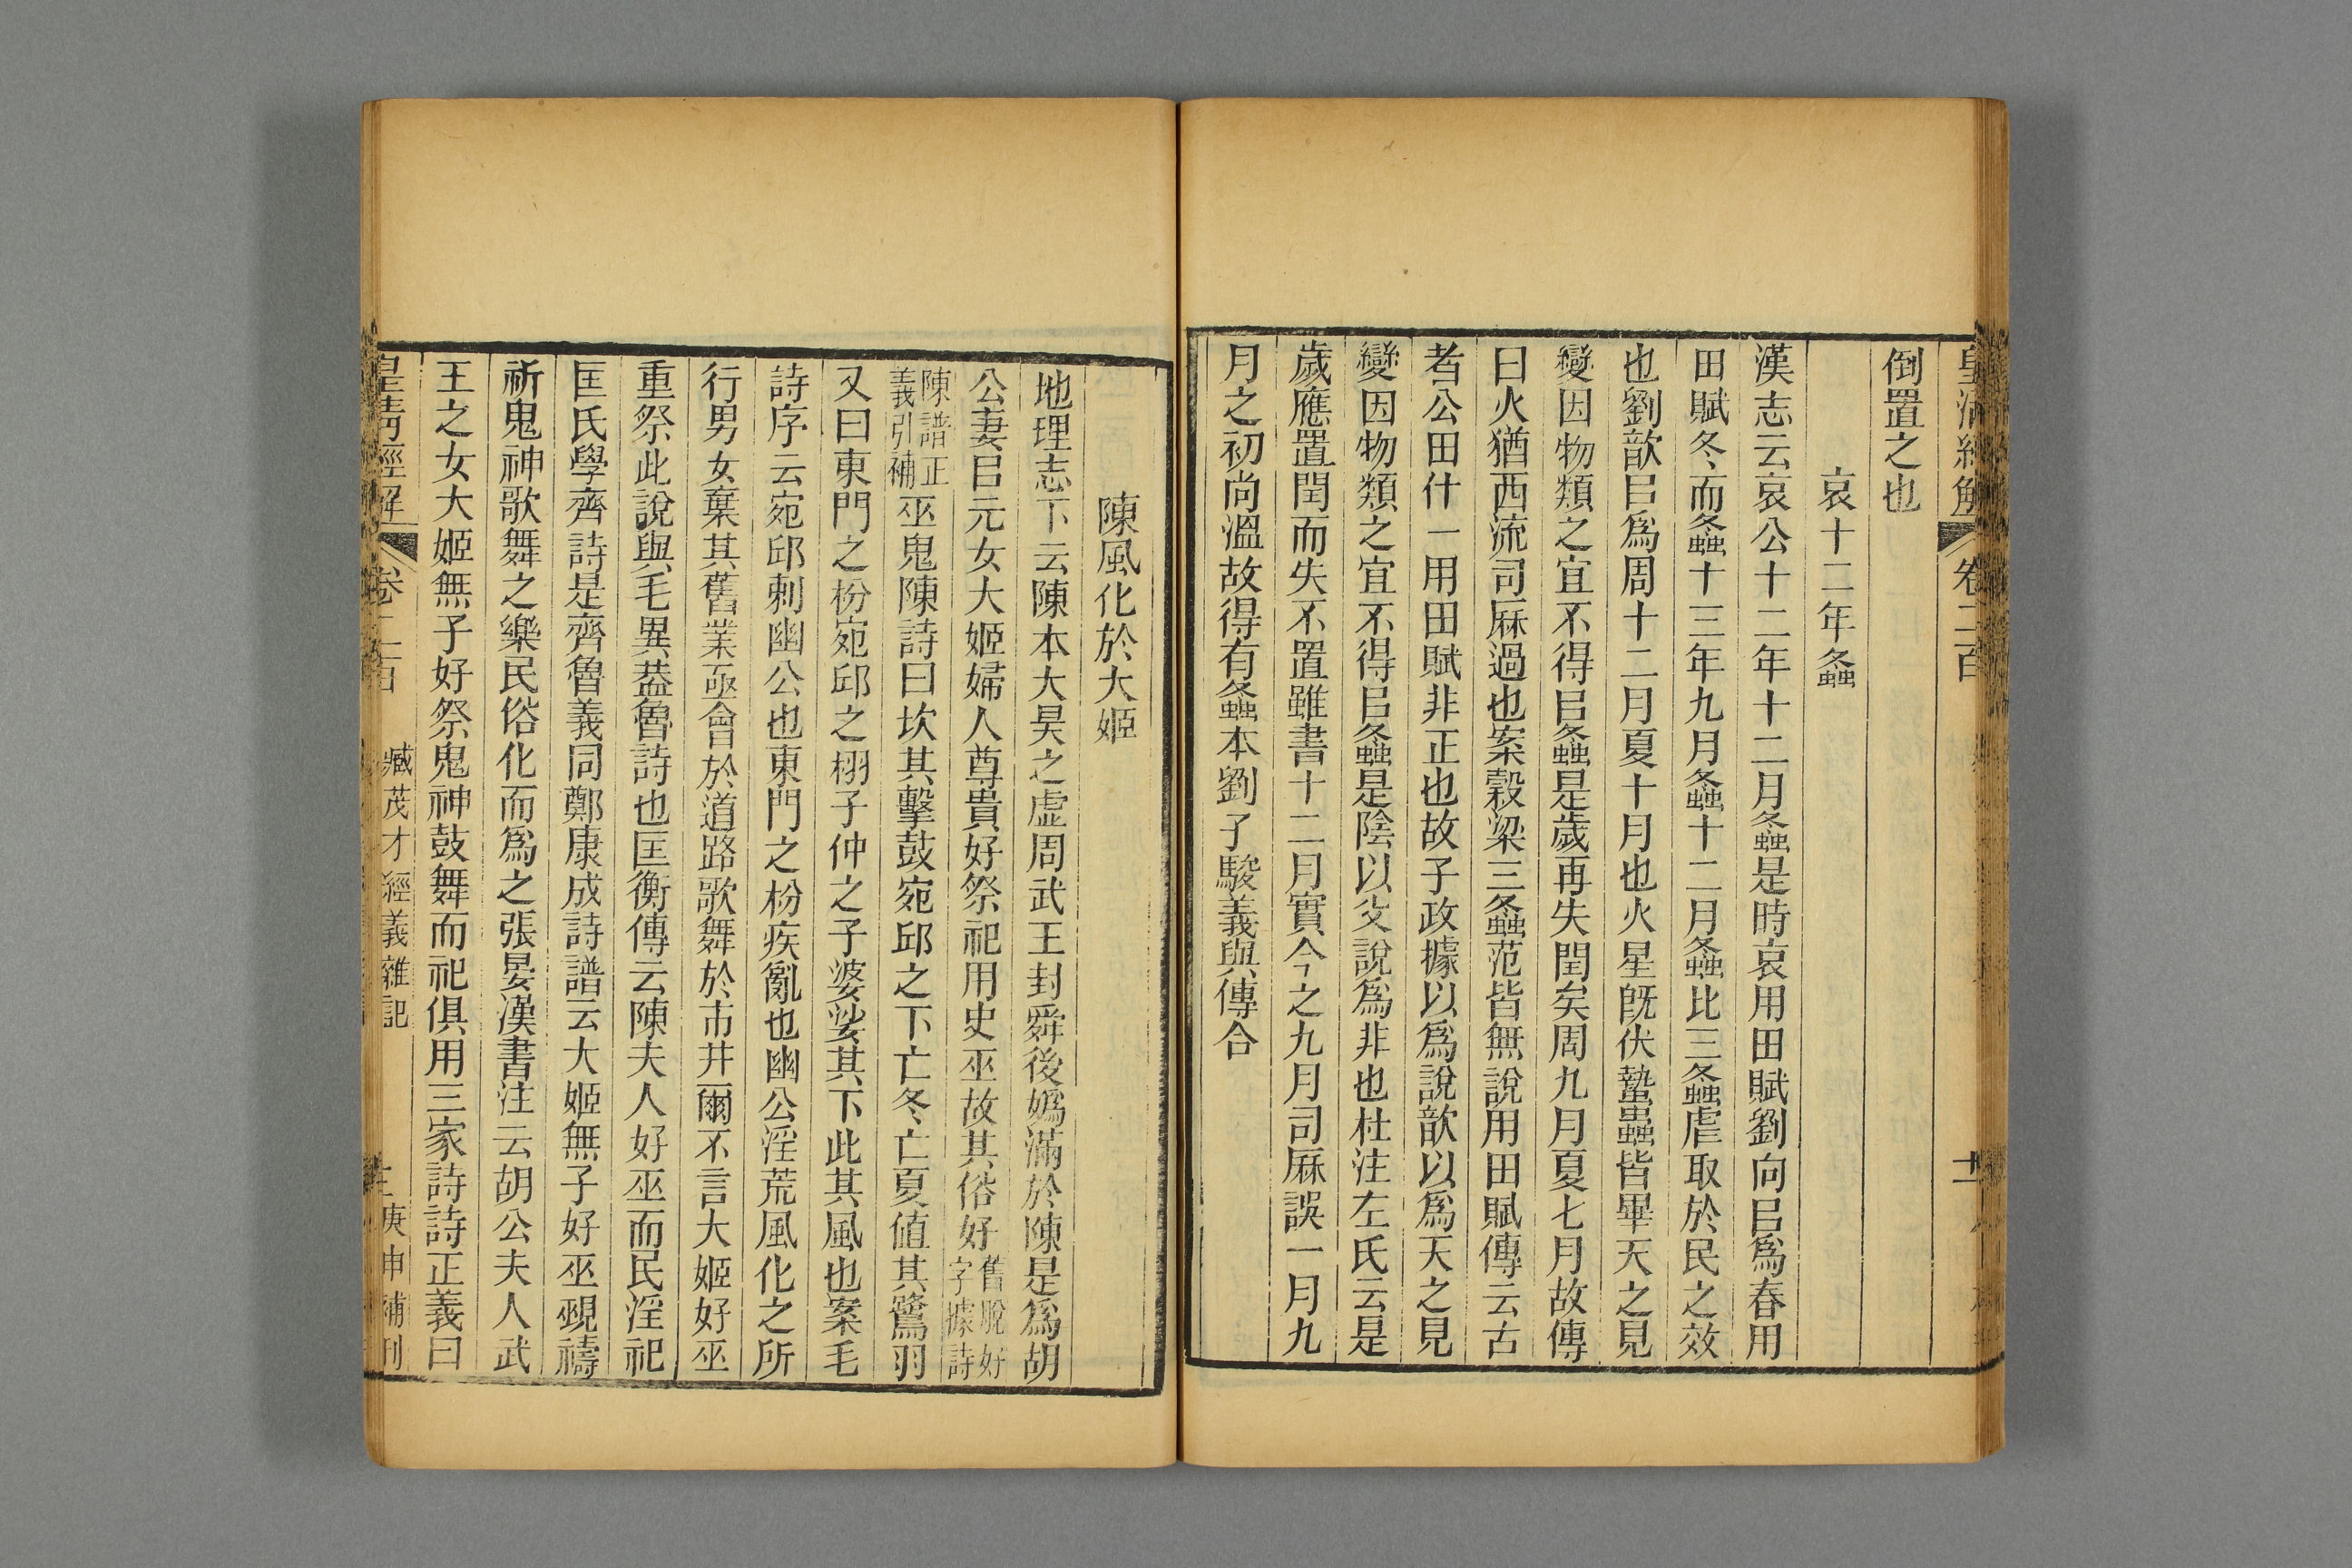 皇清經解 卷二百 十一
倒置之也
哀十二年螽
漢志云哀公十二年十二月螽是時哀用田賦劉向㠯爲春用
田賦冬而螽十三年九月螽十二月螽比三螽虐取於民之效
也劉歆㠯爲周十二月夏十月也火星旣伏蟄蟲皆畢天之見
變因物類之宜不得㠯螽是歲再失閏矣周九月夏七月故傳
曰火猶西流司厤過也案穀梁三螽范皆無說用田賦傳云古
者公田什一用田賦非正也故子政據以爲說歆以爲天之見
變因物類之宜不得㠯螽是陰以父說爲非也杜注左氏云是
歲應置閏而失不置雖書十二月實今之九月司厤誤一月九
月之初尚溫故得有螽本劉子駿義與傳合
陳風化於大姬
地理志下云陳本大昊之虛周武王封舜後嬀滿於陳是爲胡
公妻㠯元女大姬婦人尊貴好祭祀用史巫故其俗好舊脫好字據詩
陳譜正義引補巫鬼陳詩曰坎其擊鼓宛邱之下亡冬亡夏値其鷺羽
又曰東門之枌宛邱之栩子仲之子婆娑其下此其風也案毛
詩序云宛邱刺幽公也東門之枌疾亂也幽公淫荒風化之所
行男女棄其舊業亟會於道路歌舞於市井爾不言大姬好巫
重祭此說與毛異葢魯詩也匡衡傳云陳夫人好巫而民淫祀
匡氏學齊詩是齊魯義同鄭康成詩譜云大姬無子好巫覡禱
祈鬼神歌舞之樂民俗化而爲之張晏漢書注云胡公夫人武
王之女大姬無子好祭鬼神鼓舞而祀俱用三家詩詩正義曰
皇清經解 卷二百 臧茂才經義雜記 庚申補刊